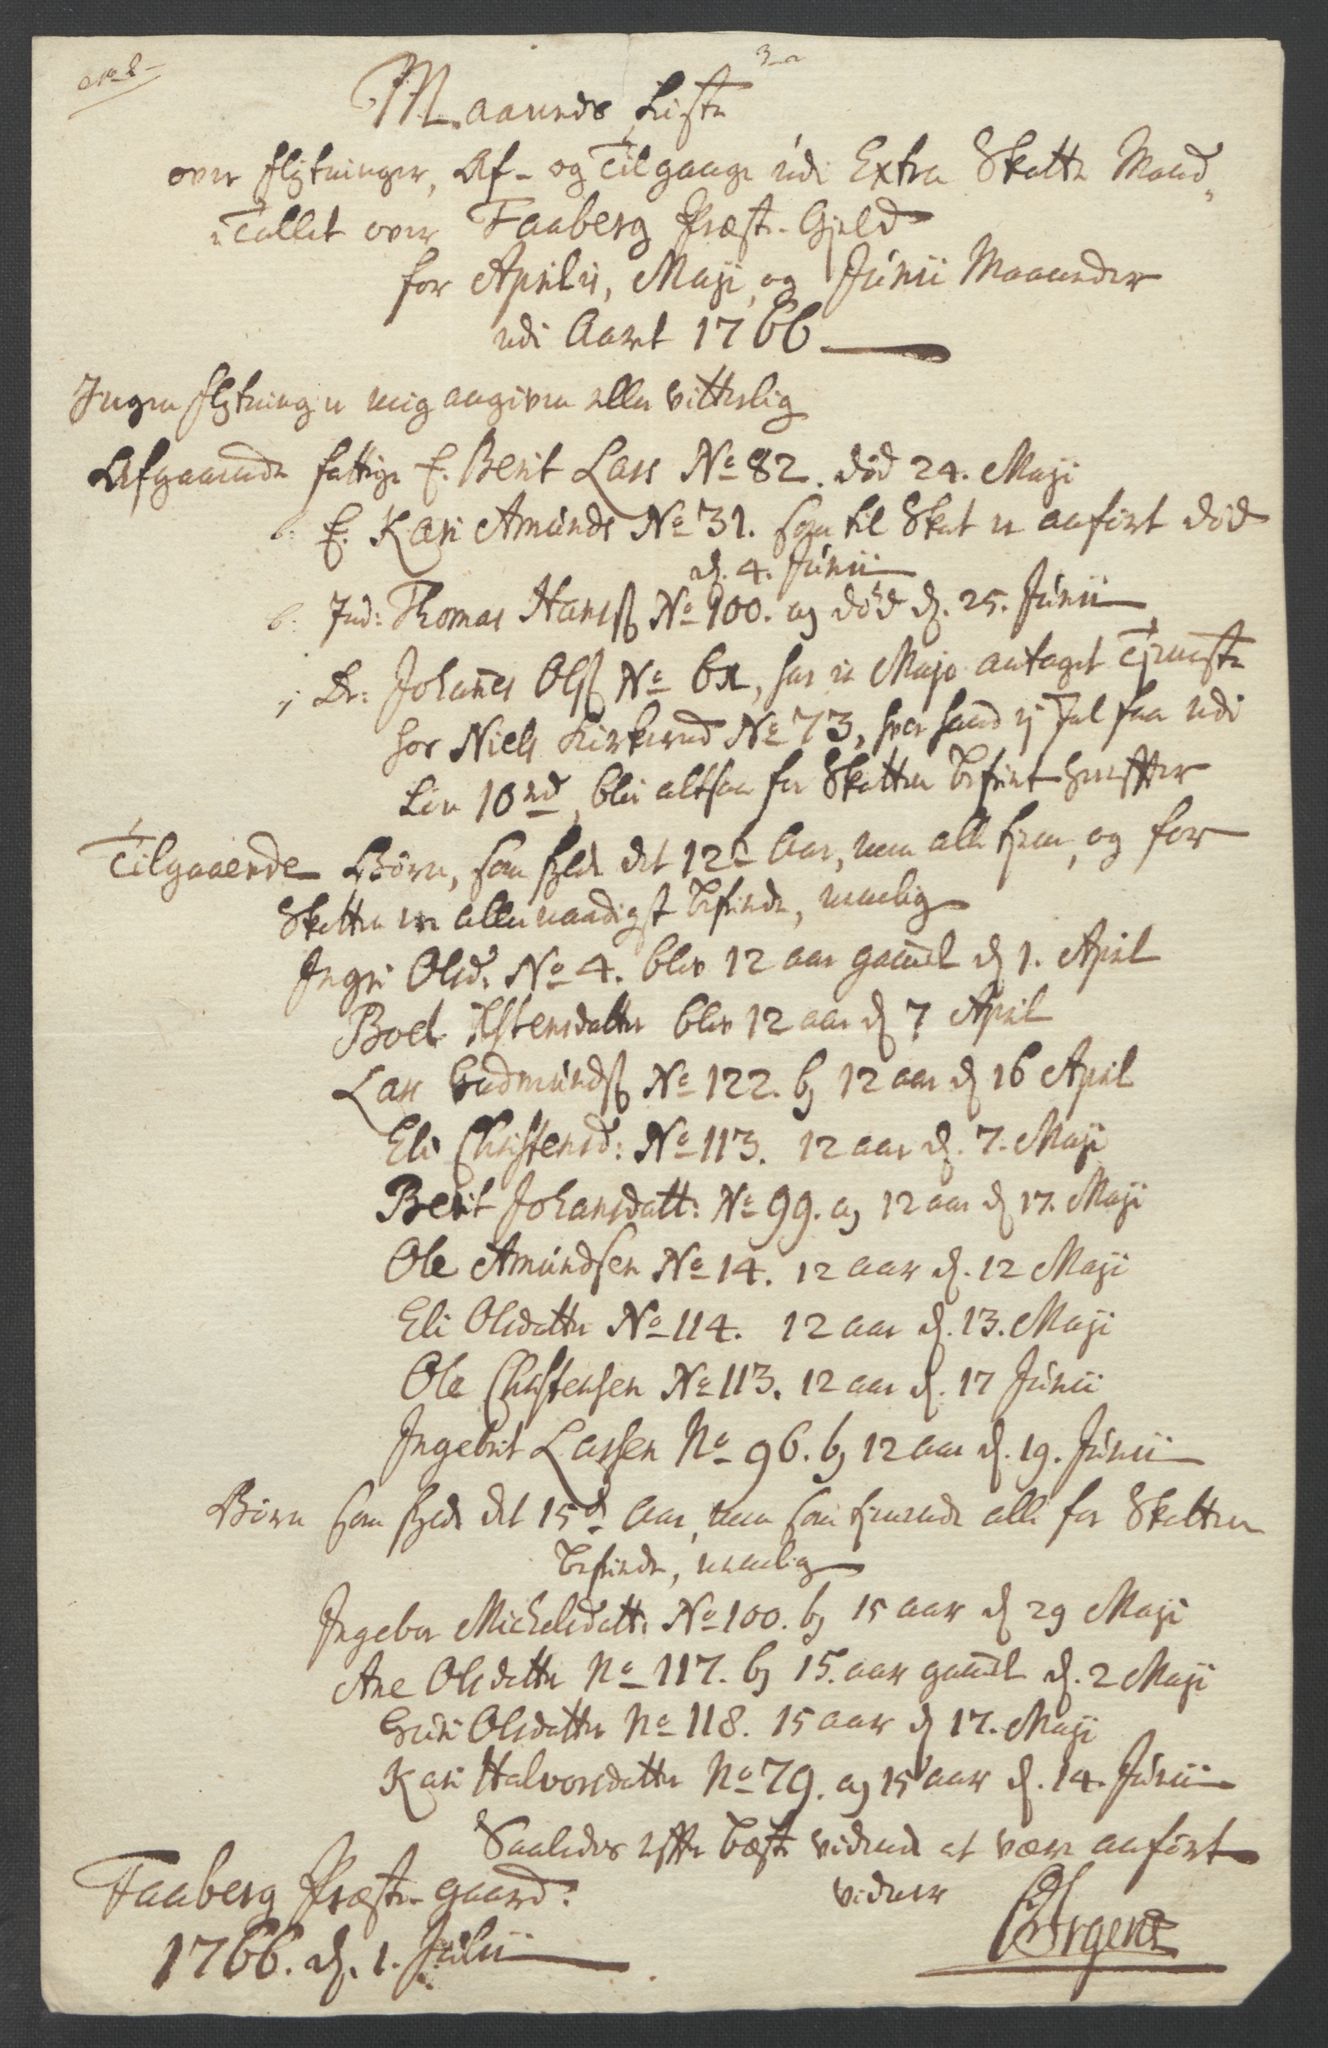 No 8
3-a
Maaneds Liste
over flytninger, Af- og Tilgange udi Extra Skatte Mand-
Tallet over Faaberg Præste-Gjeld
for Aprilis, Maji, og Junii Maaneder
udi Aaret 1766
Ingen flytning er mig angiven eller vitterlig
Afgaaende fattige E. Berit Lars No 82. død 24. Maji
b: E. Kari Amunds No 31. som til Skat er anført død
d. 4. Junii
b: Ind: Thomas Hans No 100. ag død d. 25. Junii
j Dr: Johannes Ols No har in Majo antaget Tjeneste
hos Niels Kirkerud No 73, hver Mand ej Tal faa udi
Lin 10nd, blir altsaa for Skatten befriet herefter
Tilgaaende Børn, som fylde det 12te Aar, men alle hjem, og for
Skatten ere allernaadigst befriede, nemlig
Ingri Olsd. No 4. blev 12 aar gammel d 1. April
Boel Estensdatter blev 12 aar d 7 April
Lars Gudmunds No 122. b 12 aar d 16 April
Eli Christensd: No 113. 12 aar d. 7. Maji
Berit Johansdatt: No 99. ag 12 aar d 17. Maji
Ole Amundsen No 14. 12 aar d. 12 Maji
Eli Olsdatter No 114. 12 aar d. 13. Maji
Ole Christensen No 113. 12 aar d. 17 Junii
Ingebrit Larsen No 96. b 12 aar d. 19. Junii
Børn som fylde det 15d Aar, men som hjemme alle for Skatten
befriede, nemlig
Ingebor Michelsdatt: No 100. b 15 aar d 29 Maji
Ane Olsdatter No 117. b 15. aar gammel d. 2 Maji
Guri Olsdatter No 118. 15 aar d 17. Maji
Kari Halvorsdatter No 79. ag 15 aar d. 14. Junii
Saaledes efter beste vidende at være anført
vidner
Faaberg Præste-gaard.
1766. d. 1. Julii